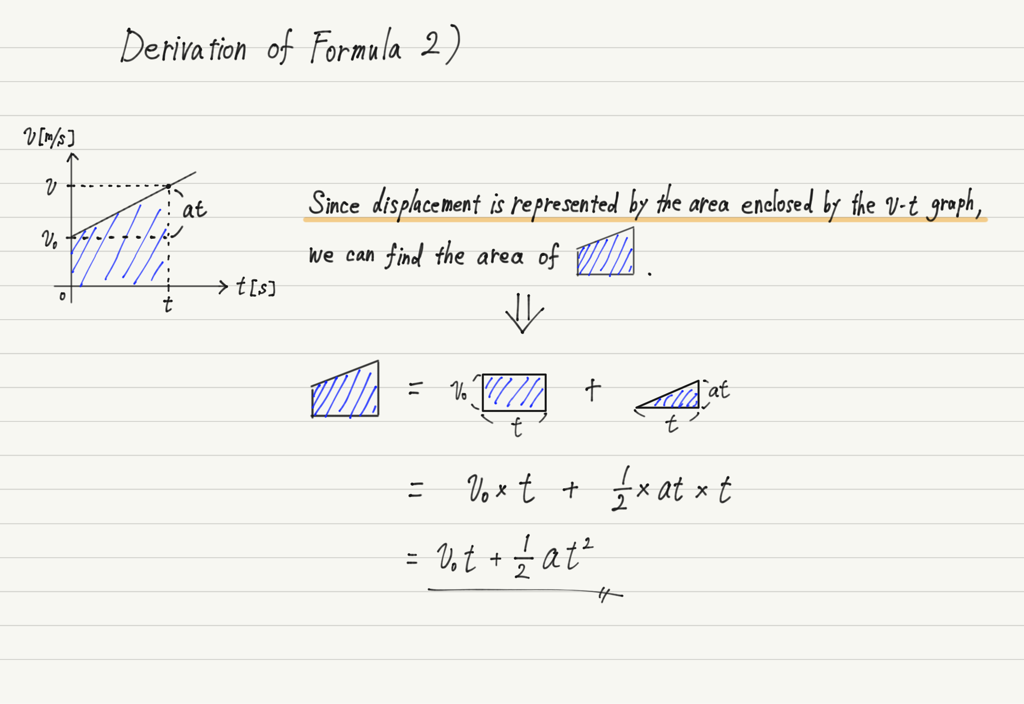 Derivation of Formula 2)
v[m/s]
v
at
v₀
0
t
t[s]
Since displacement is represented by the area enclosed by the v-t graph,
we can find the area of .
⇓
= v₀ t + at t
= v₀ × t + 1/2 × at × t
= v₀t + 1/2 at²